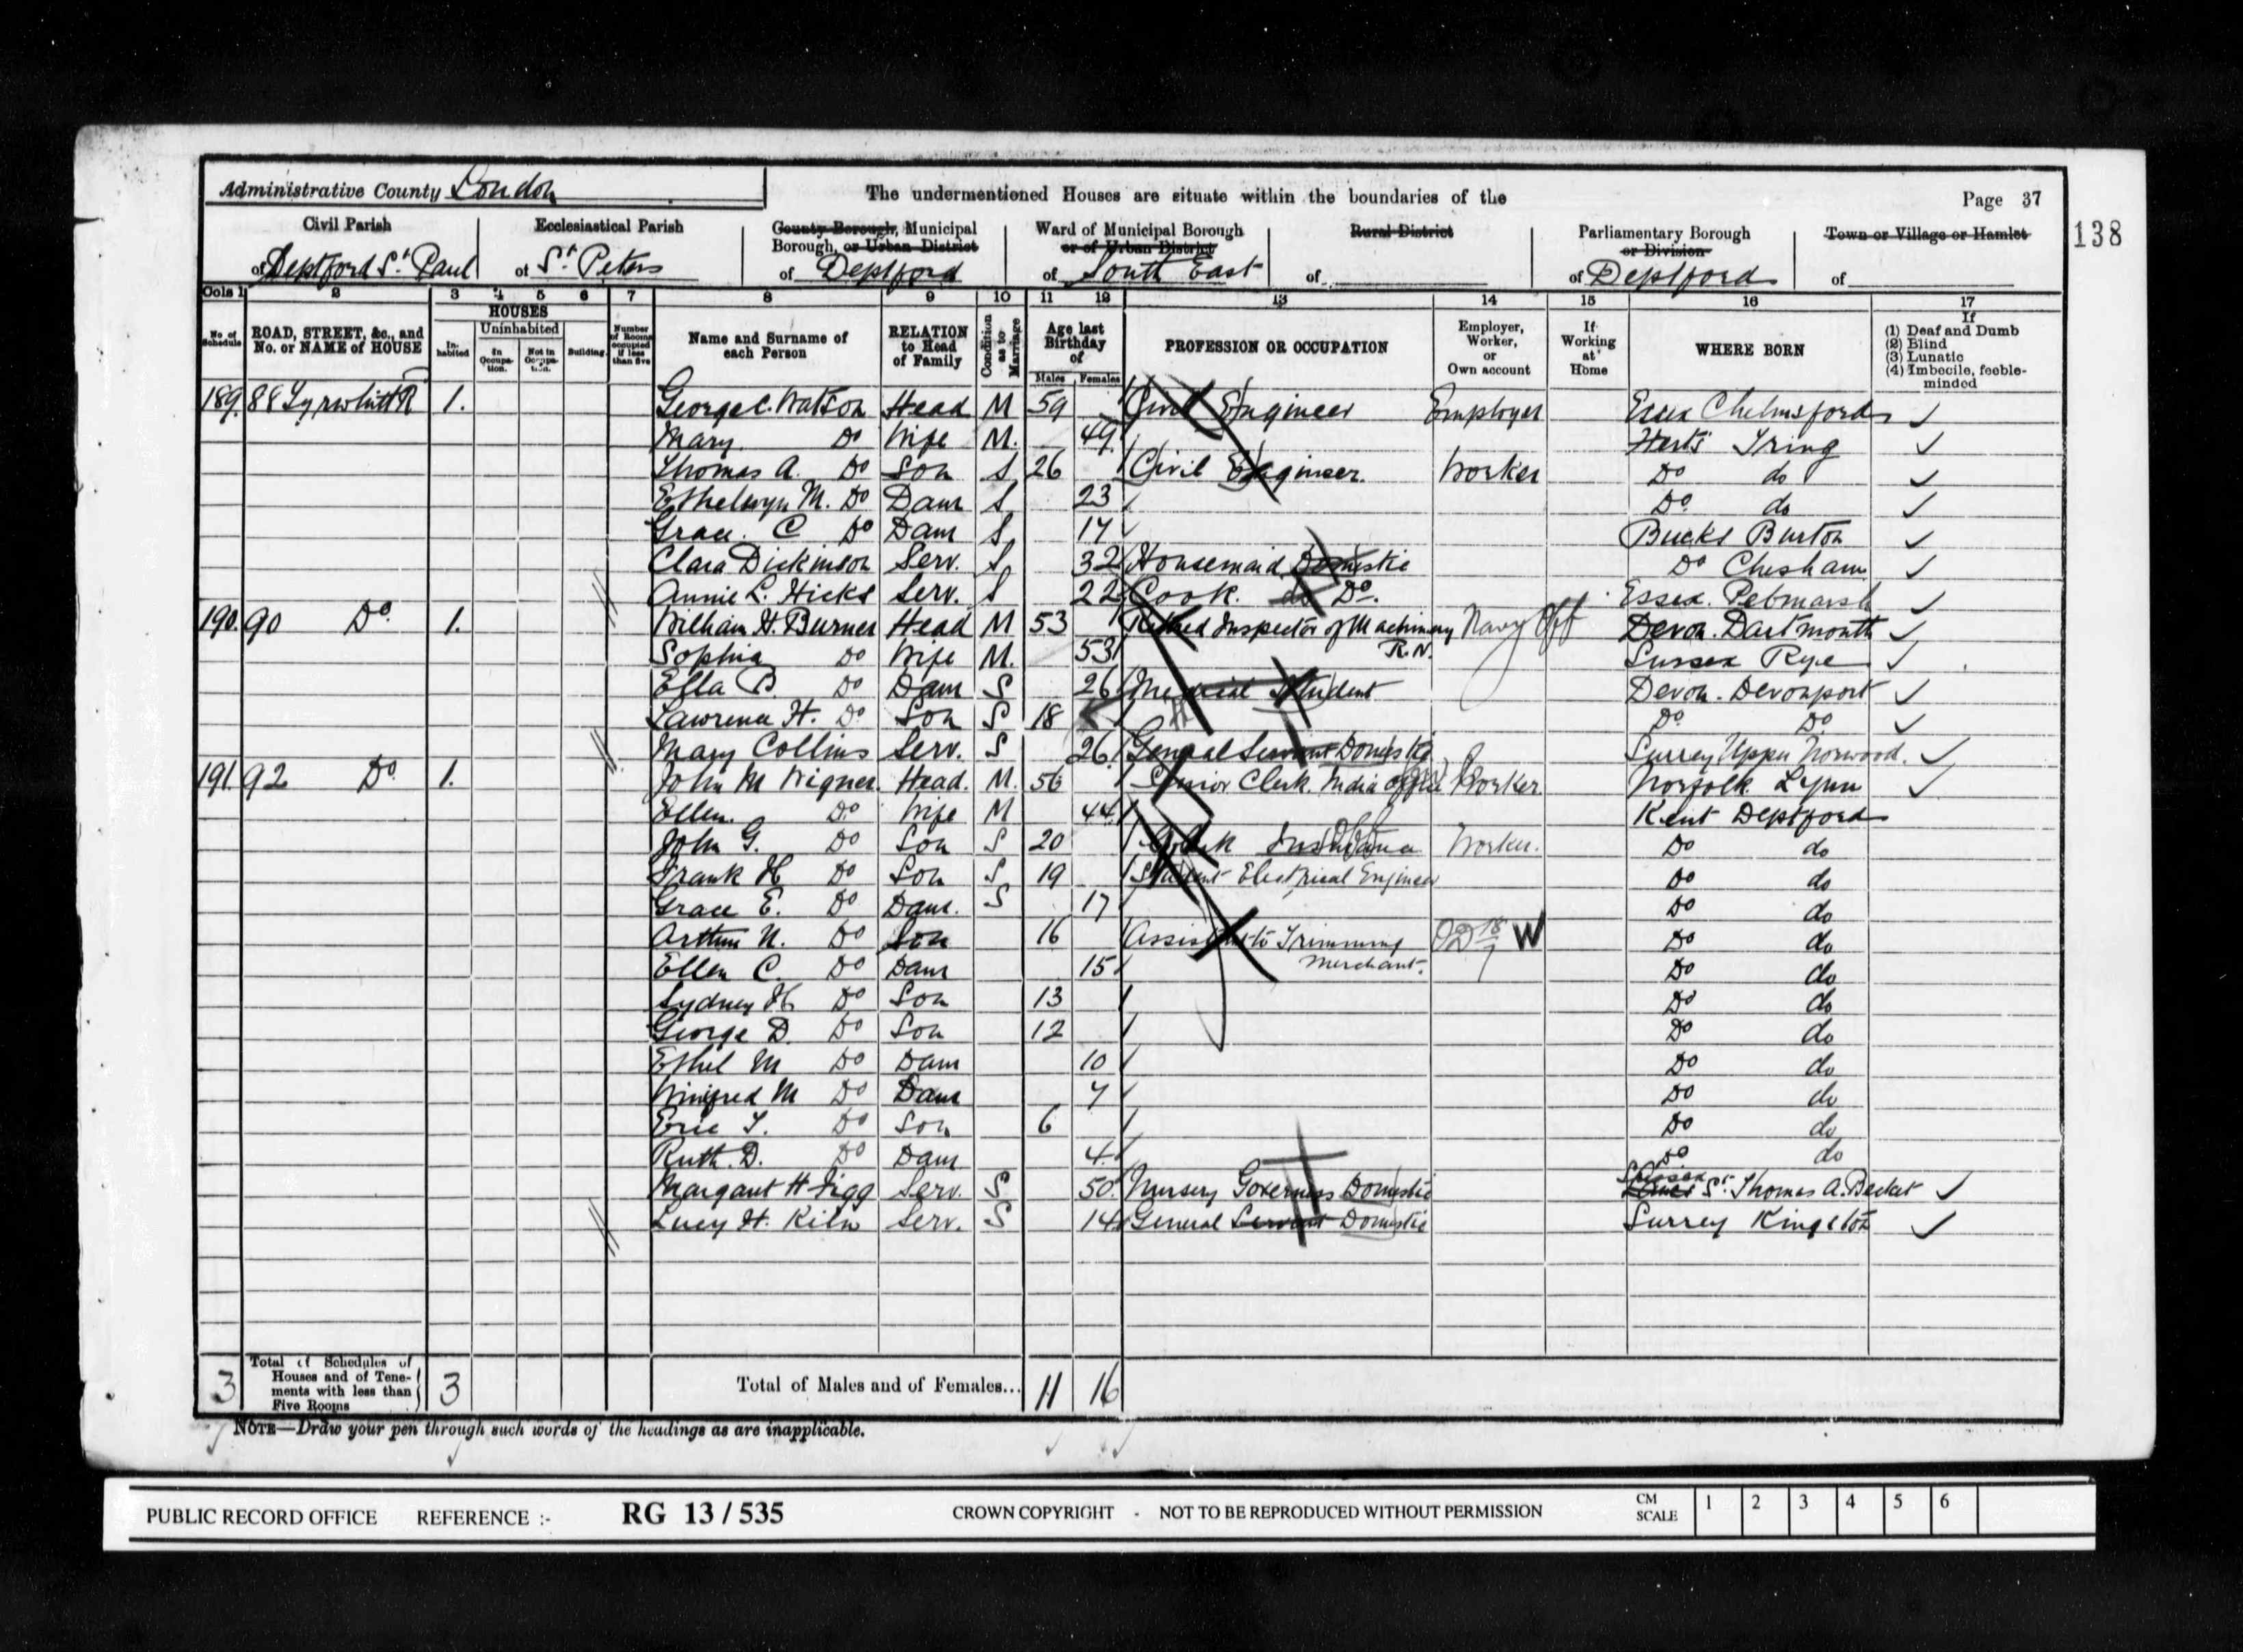 Administrative County London
The undermentioned Houses are situate within the boundaries of the
Page 37
138
Civil Parish of Deptford St. Paul
Ecclesiastical Parish of St. Peters
County Borough, Municipal Borough, or Urban District of Deptford
Ward of Municipal Borough or of Urban District of South East
Rural District of
Parliamentary Borough or Division of Deptford
Town or Village or Hamlet of
Cols 1 2 3 4 5 6 7 8 9 10 11 12 13 14 15 16 17
No. of Schedule
ROAD, STREET, &c., and No. or NAME of HOUSE
HOUSES
Inhabited
Uninhabited
In Occupation.
Not in Occupation.
Building
Number of Rooms occupied if less than five
Name and Surname of each Person
RELATION to Head of Family
Condition as to Marriage
Age last Birthday of
Males Females
PROFESSION OR OCCUPATION
Employer, Worker, or Own account
If Working at Home
WHERE BORN
If
(1) Deaf and Dumb
(2) Blind
(3) Lunatic
(4) Imbecile, feeble-minded
189. 88 Tyrwhitt Rd 1. George C. Watson Head M 59 Civil Engineer Employer Essex Chelmsford
Mary Do Wife M. 49 Herts Tring
Thomas A. Do Son S 26 Civil Engineer. Worker Do do
Ethelwyn M. Do Daur S 23 Do do
Grace. C Do Daur S 17 Bucks Burton
Clara Dickinson Serv. S 32 Housemaid Domestic Do Chesham
Annie L. Hicks Serv. S 22 Cook. do Do. Essex. Pebmarsh
190. 90 Do. 1. William H. Burner Head M 53 Retired Inspector of Machinery R.N. Navy Off Devon. Dartmouth
Sophia Do Wife M. 53 Sussex Rye
Ella B. Do Daur S 26 Medical Student Devon. Devonport
Lawrence H. Do Son S 18 Do. Do.
Mary Collins Serv. S 26. General Servant Domestic Surrey Upper Norwood.
191. 92 Do. 1. John M Wigner. Head. M. 56 Senior Clerk. India Office Worker. Norfolk Lynn
Ellen. Do Wife M 44 Kent Deptford
John G. Do Son S 20 Clerk Insurance Worker. Do do
Frank H Do Son S 19 Student Electrical Engineer Do do
Grace E. Do Daur. S 17 Do do
Arthur N. Do Son 16 Assistant to Trimming Merchant. W Do do
Ellen C Do Daur 15 Do do
Sydney H Do Son 13 Do do
George D. Do Son 12 Do do
Ethel M Do Daur 10 Do do
Winifred M Do Daur 7 Do do
Eric T. Do Son 6 Do do
Ruth. D. Do Daur 4. Do do
Margaret H Figg Serv. S 50. Nursery Governess Domestic Sussex St. Thomas A. Becket
Lucy H. Kiln Serv. S 14 General Servant Domestic Surrey Kingston
3 Total of Schedules of Houses and of Tenements with less than Five Rooms 3 Total of Males and of Females... 11 16
NOTE—Draw your pen through such words of the headings as are inapplicable.
PUBLIC RECORD OFFICE REFERENCE :- RG 13 / 535 CROWN COPYRIGHT - NOT TO BE REPRODUCED WITHOUT PERMISSION CM SCALE 1 2 3 4 5 6